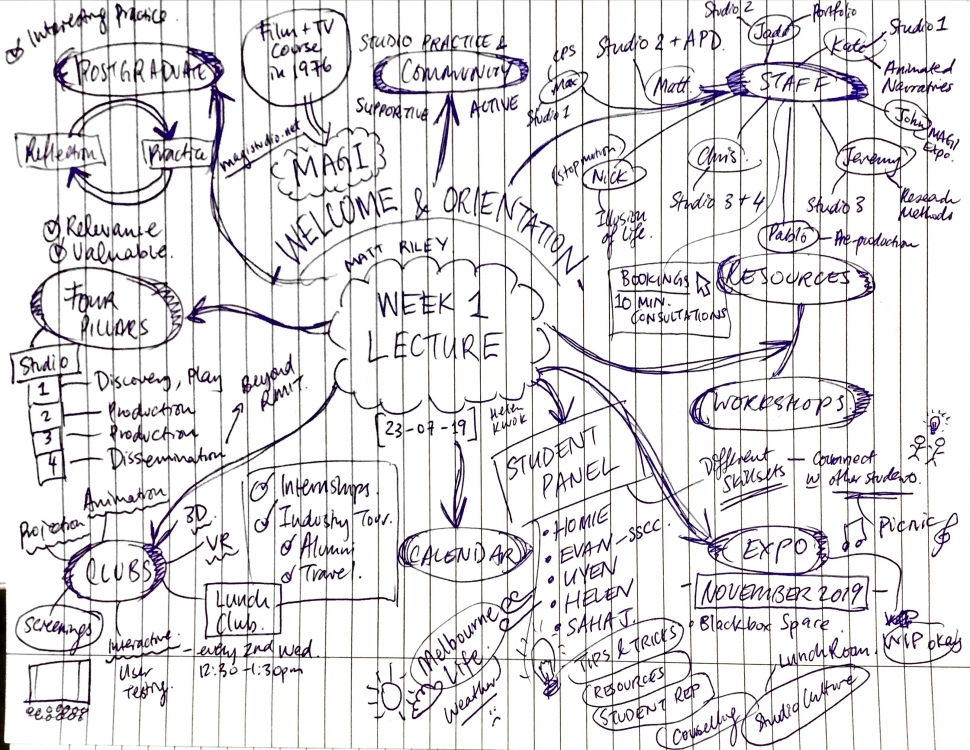 Interesting Practice
POSTGRADUATE
Reflection
Practice
Relevance
Valuable.
Film + TV
Course
in 1976
magistudio.net
MAGI
STUDIO PRACTICE &
COMMUNITY
SUPPORTIVE
ACTIVE
WELCOME & ORIENTATION
MATT RILEY
WEEK 1
LECTURE
[23-07-19]
Helen
Kwok
Studio 2
Portfolio
Jadd
Kate
Studio 1
Animated
Narratives
Studio 2 + APD.
CPS
Max
Studio 1
Matt
STAFF
John
MAGI
Expo.
Stop motion
Nick
Illusion
of life.
Chris
Studio 3 + 4
Jeremy
Studio 3
Research
Methods
Pablo
Pre-production
BOOKINGS
10 MIN.
CONSULTATIONS
RESOURCES
WORKSHOPS
FOUR
PILLARS
Studio
1
Discovery, Play
2
Production
3
Production
4
Dissemination
Beyond
RMIT.
Projection
Animation
3D
VR
CLUBS
Screenings
Interactive
User
Testing.
Lunch
Club.
every 2nd Wed.
12:30-1:30pm
Internships.
Industry Tour.
Alumni
Travel.
CALENDAR
STUDENT
PANEL
• HOMIE
• EVAN - SSCC.
• UYEN
• HELEN
• SAHAJ.
Different
Skillsets
Connect
w other students.
Melbourne
Life.
Weather
TIPS & TRICKS
RESOURCES
STUDENT REP
Counselling
Studio Culture
Lunch Room.
EXPO
Picnic
NOVEMBER 2019
• Blackbox Space
WIP okay